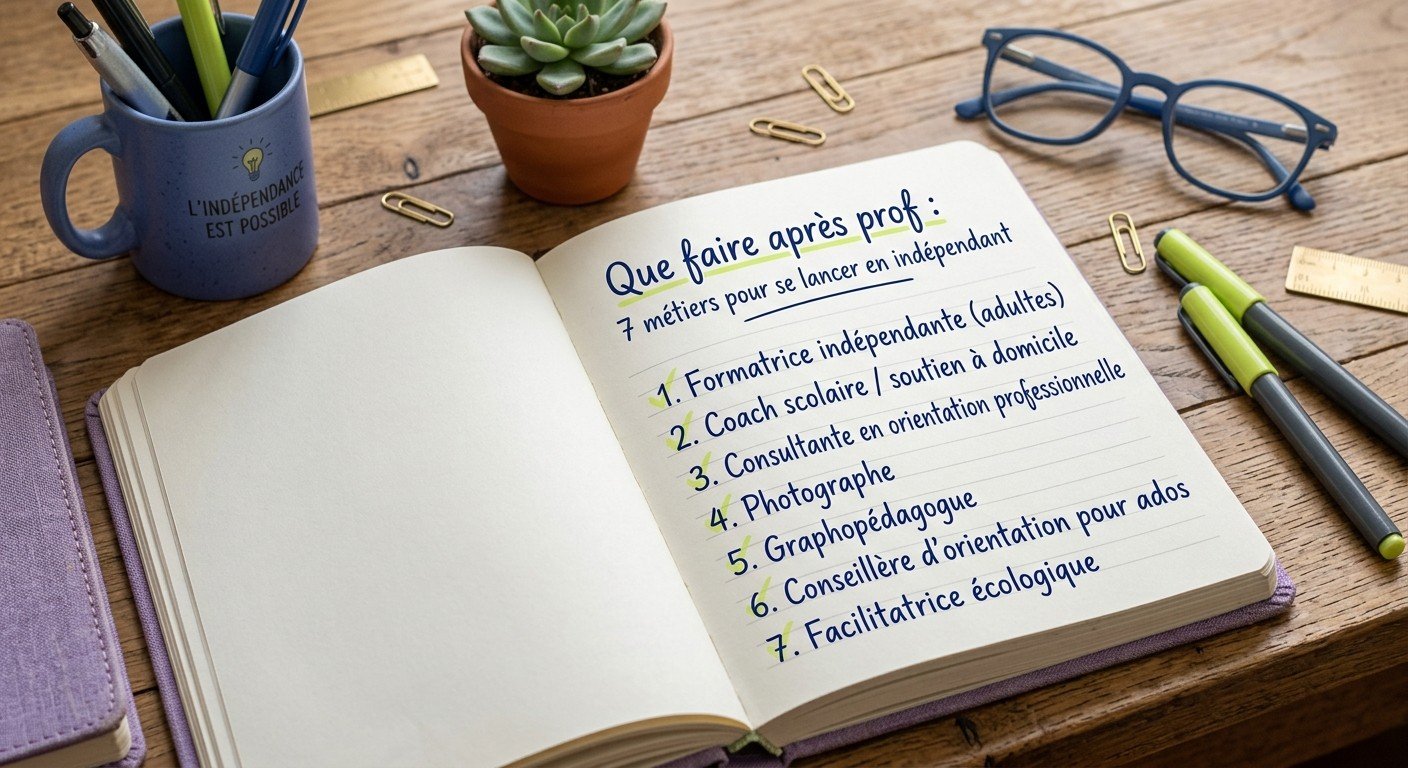 L'INDÉPENDANCE
EST POSSIBLE
Que faire après prof :
7 métiers pour se lancer en indépendant
1. Formatrice indépendante (adultes)
2. Coach scolaire / soutien à domicile
3. Consultante en orientation professionnelle
4. Photographe
5. Graphopédagogue
6. Conseillère d'orientation pour ados
7. Facilitatrice écologique